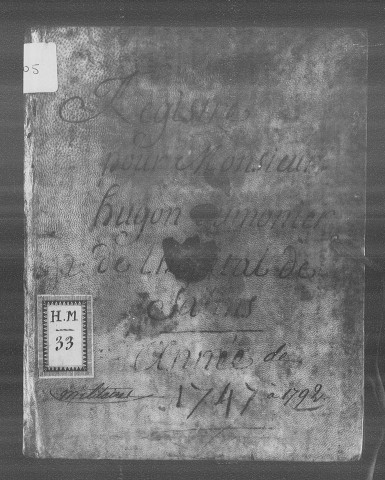 05
Registre
pour Monsieur
hugon aumonier
de l'hopital de
Salins
H.M.
33
Année de
militaires 1747 à 1792